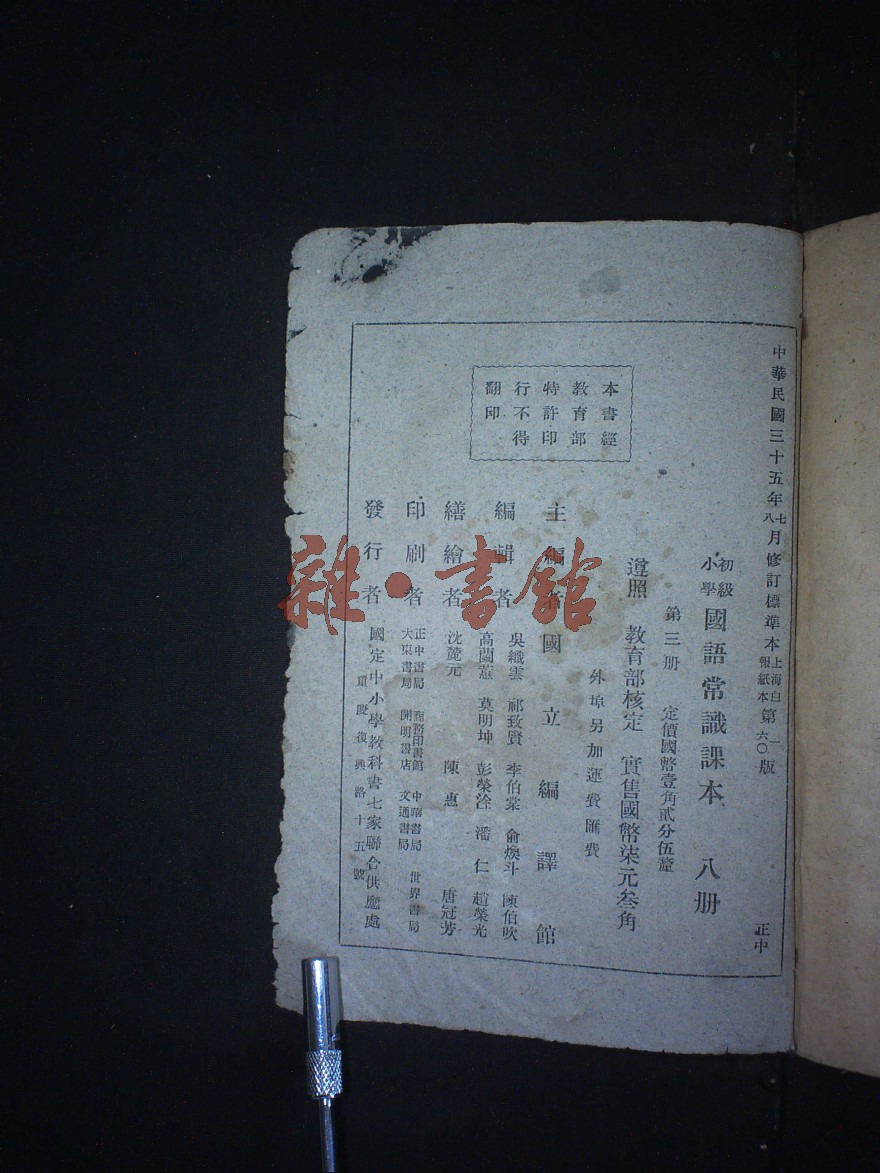 中華民國三十五年七八月修訂標準本上海白報紙本第一六〇版
正中
初級小學國語常識課本 八册
第三册 定價國幣壹角貳分伍釐
遵照教育部核定 實售國幣柒元叁角
外埠另加運費匯費
本書經
教育部
特許印
行不得
翻印
主編者 國立編譯館
編輯者 吳織雲 祁致賢 李伯棠 俞煥斗 陳伯吹
高蘭蕙 莫明坤 彭榮淦 潘仁 趙榮光
繕繪者 沈麓元 陳惠 唐冠芳
印刷者 正中書局 商務印書館 中華書局 世界書局
大東書局 開明書店 文通書局
發行者 國定中小學教科書七家聯合供應處
重慶復興路十五號
雜·書館